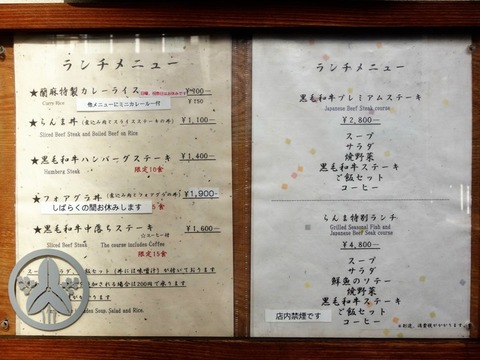 ランチメニュー
★蘭麻特製カレーライス ¥900
Curry Rice
他メニューにミニカレールー付 ¥150
★らんま丼 (煮込み肉とスライスステーキの丼) ¥1,100-
Sliced Beef Steak and Boiled Beef on Rice
★黒毛和牛ハンバーグステーキ ¥1,400-
Humberg Steak 限定10食
★フォアグラ丼 (煮込み肉とフォアグラの丼) ¥1,900-
しばらくの間お休みします
★黒毛和牛中落ちステーキ ¥1,600-
☆コーヒー付
Sliced Beef Steak The course includes Coffee
限定15食
Soup, Salad and Rice.
ランチメニュー
黒毛和牛プレミアムステーキ
Japanese Beef Steak course
¥2,800-
スープ
サラダ
焼野菜
黒毛和牛ステーキ
ご飯セット
コーヒー
らんま特別ランチ
Grilled Seasonal Fish and
Japanese Beef Steak course
¥4,800-
スープ
サラダ
鮮魚のソテー
焼野菜
黒毛和牛ステーキ
ご飯セット
コーヒー
店内禁煙です
※別途、消費税がかかります